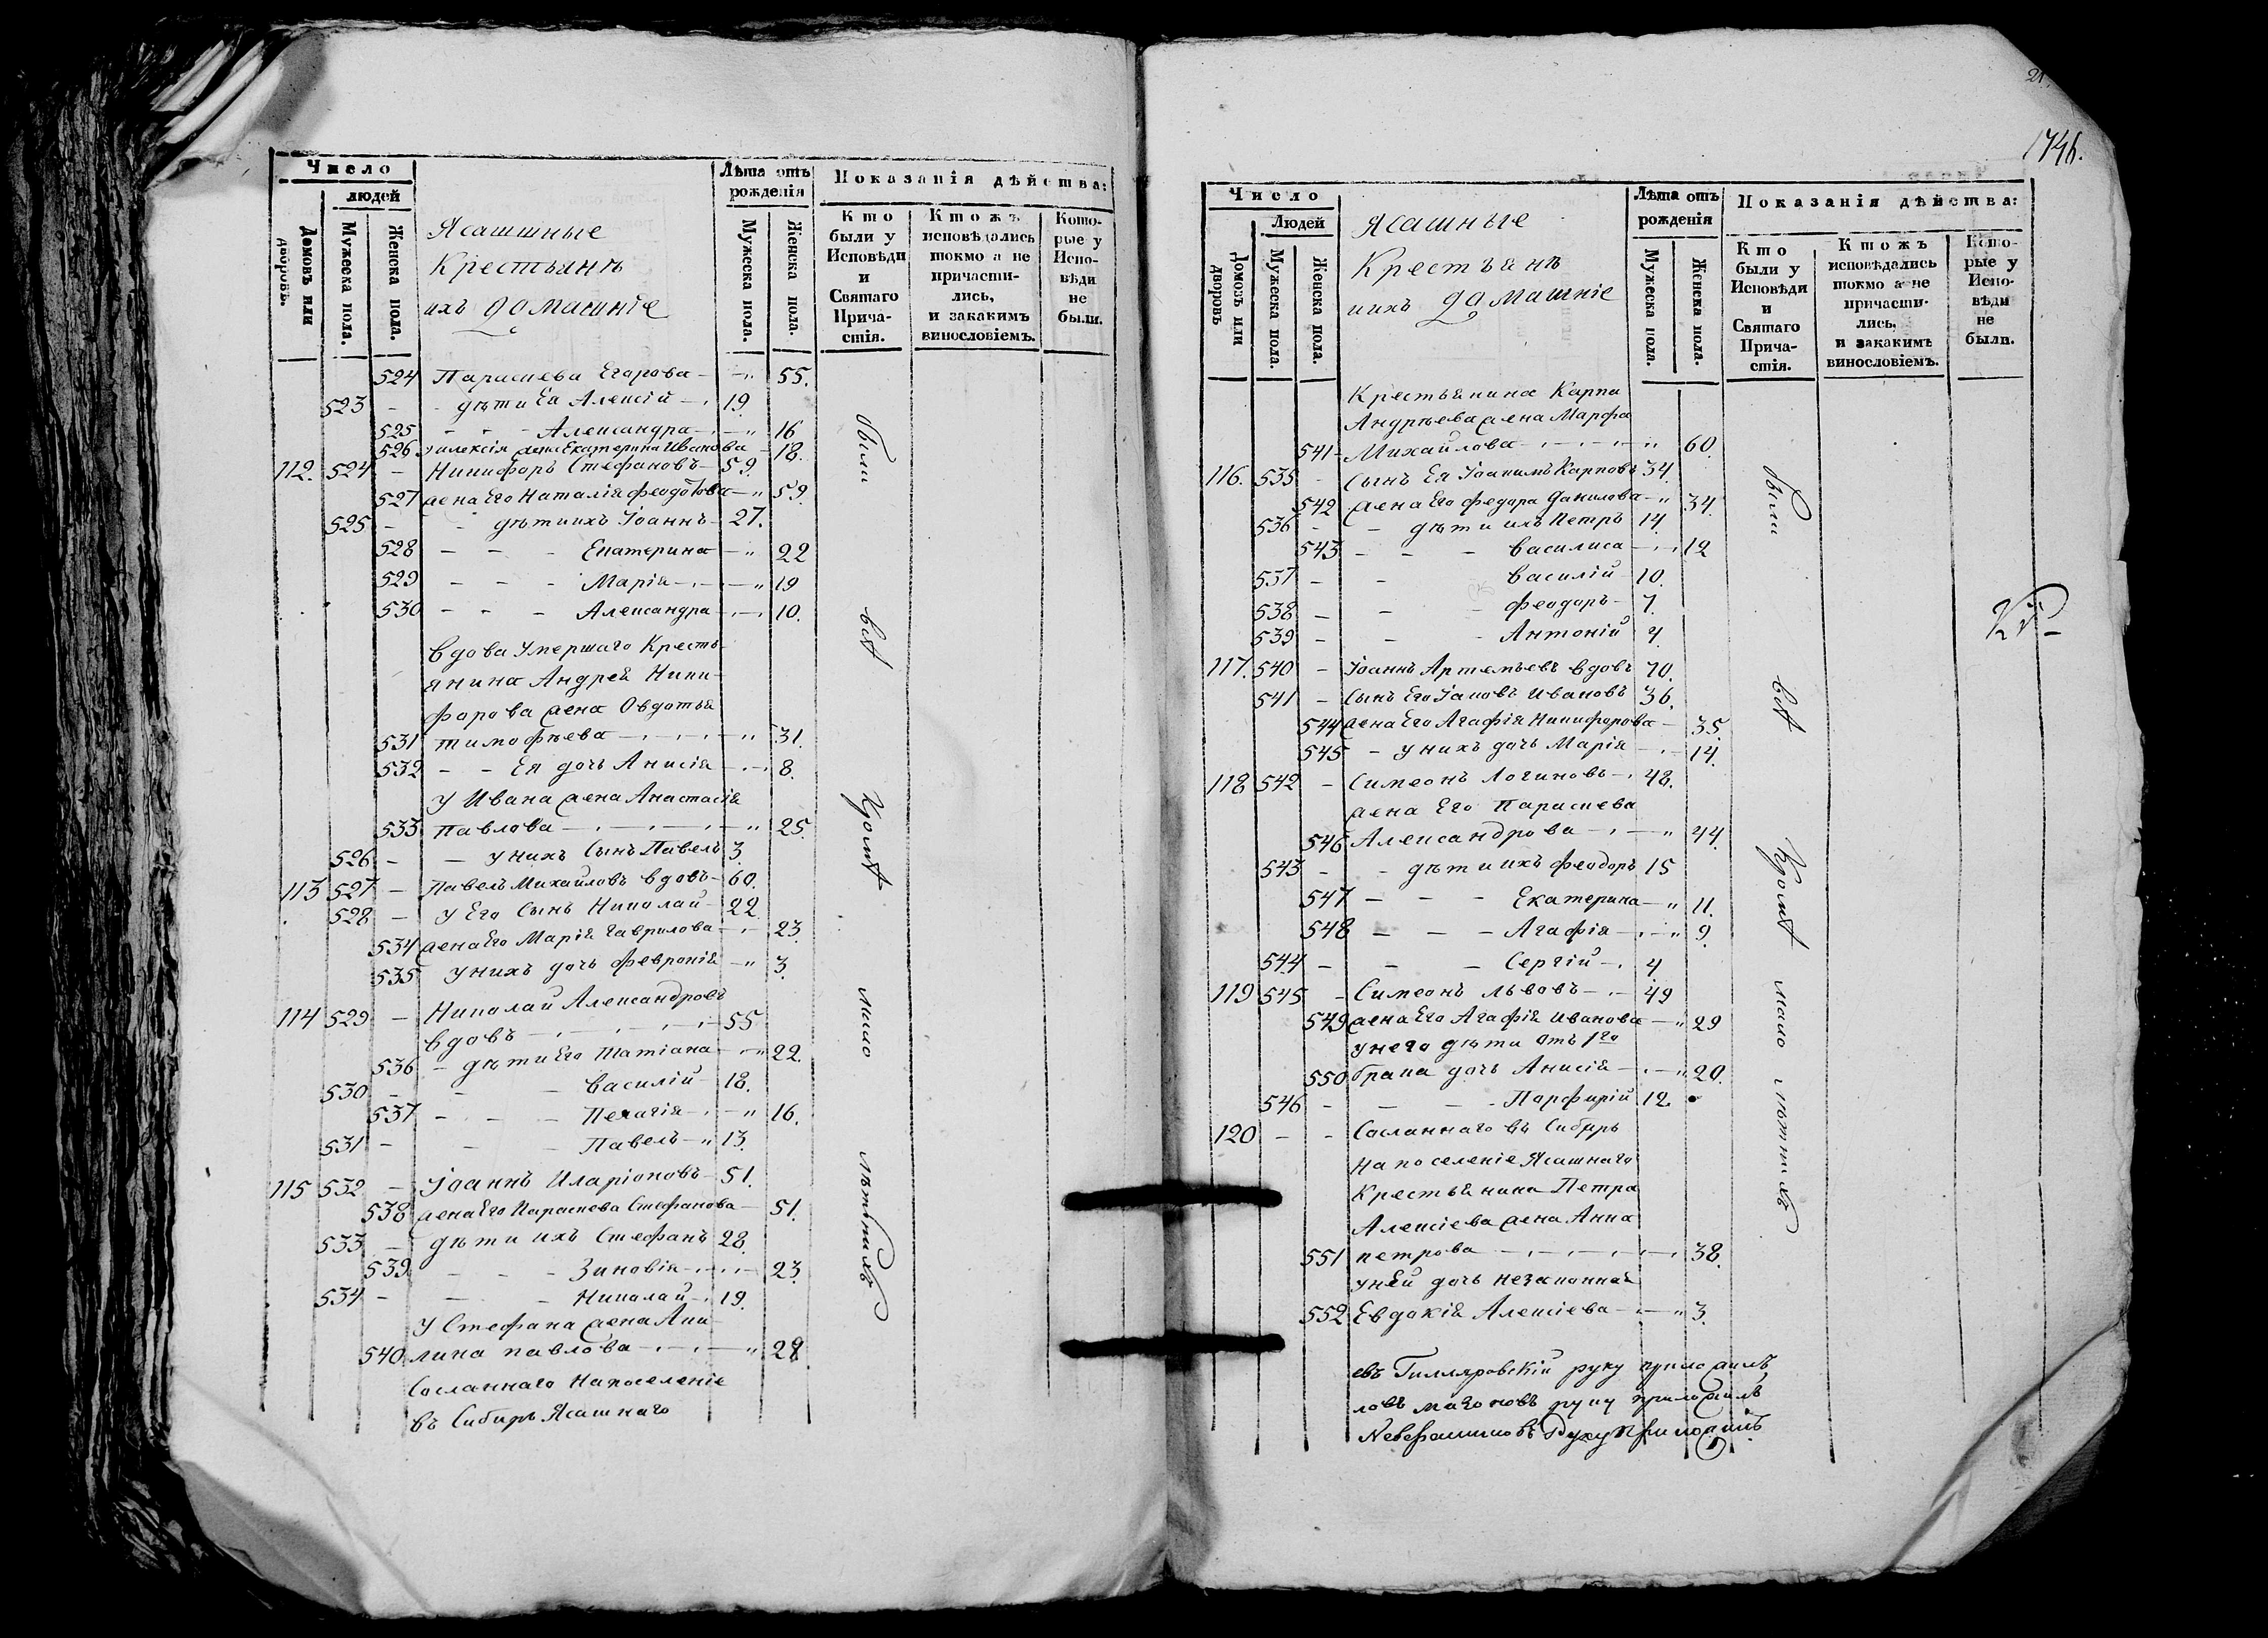 Число
людей
Домовъ или дворовъ.
Мужеска пола.
Женска пола.
Ясашшные
Крестьянъ
ихъ домашніе
Лѣта отъ рожденія
Мужеска пола.
Женска пола.
Показанія дѣйства:
Кто были у Исповѣди и Святаго Причастія.
Ктожъ исповѣдались токмо а не причастились, и закакимъ винословіемъ.
Которые у Исповѣди не были.
524 Параскева Егорова 55.
523 дѣти Ея Алексій 19.
525 Александра 16
526 у Алексія жена Екатерина Иванова 18.
112. 524 Никифоръ Стефановъ 59.
527 жена Его Наталія Феодотова 59.
525 дѣти ихъ Іоаннъ 27.
528 Екатерина 22
529 Марія 19
530 Александра 10.
Вдова умершаго Кресть-
янина Андрей Ники-
форова жена Овдотья
531 тимофѣева 31.
532 Ея дочь Анисія 8.
У Ивана жена Анастасія
533 павлова 25.
526 у нихъ Сынъ Павелъ 3.
113 527 Павелъ Михайловъ вдовъ 60.
528 у Его Сынъ Николай 22.
534 жена Его Марія Гаврилова 23.
535 у нихъ дочь Февронія 3.
114 529 Николай Александровъ
вдовъ 55
536 дѣти Его Татіана 22.
530 Василій 18.
537 Пелагія 16.
531 Павелъ 13.
115 532 Іоаннъ Иларіоновъ 51.
538 жена Его Параскева Стефанова 51.
533 дѣти ихъ Стефанъ 28.
539 Зиновія 23.
534 Николай 19.
У Стефана жена Аки-
540 лина павлова 28
Сосланнаго на поселеніе
въ Сибирь Ясашнаго
были
всѣ
Кромѣ
мало
лѣтнихъ
1746.
Число
Людей
Домовъ или дворовъ
Мужеска пола.
Женска пола.
Ясашные
Крестьянъ
ихъ домашніе
Лѣта отъ рожденія
Мужеска пола.
Женска пола.
Показанія дѣйства:
Кто были у Исповѣди и Святаго Причастія.
Ктожъ исповѣдались токмо а не причастились, и закакимъ винословіемъ.
Которые у Исповѣди не были.
Крестьянина Карпа
Андрѣева жена Марфа
541 Михайлова 60.
116. 535 Сынъ Ея Іоакимъ Карповъ 34.
542 жена Его Федора Данилова 34.
536 дѣти ихъ Петръ 14.
543 Василиса 12
537 Василій 10.
538 Феодоръ 7.
539 Антоній 4.
117. 540 Іоаннъ Артемьевъ вдовъ 70.
541 Сынъ Его Іаковъ Ивановъ 36.
544 жена Его Агафія Никифорова 35.
545 у нихъ дочь Марія 14.
118 542 Симеонъ Логиновъ 48.
жена Его Параскева
546 Александрова 44.
543 дѣти ихъ Феодоръ 15
547 Екатерина 11.
548 Агафія 9.
544 Сергій 4.
119 545 Симеонъ Львовъ 49
549 жена Его Агафія Иванова 29
у него дѣти отъ 1го
550 брака дочь Анисія 20.
546 Порфирій 12.
120 Сосланнаго въ Сибирь
на поселеніе Ясашнаго
Крестьянина Петра
Алексіева жена Анна
551 петрова 38.
у ней дочь незаконная
552 Евдокія Алексіева 3.
были
всѣ
Кромѣ
мало
лѣтнихъ
евъ Гилляровскій руку приложилъ
руку приложилъ
руку приложилъ